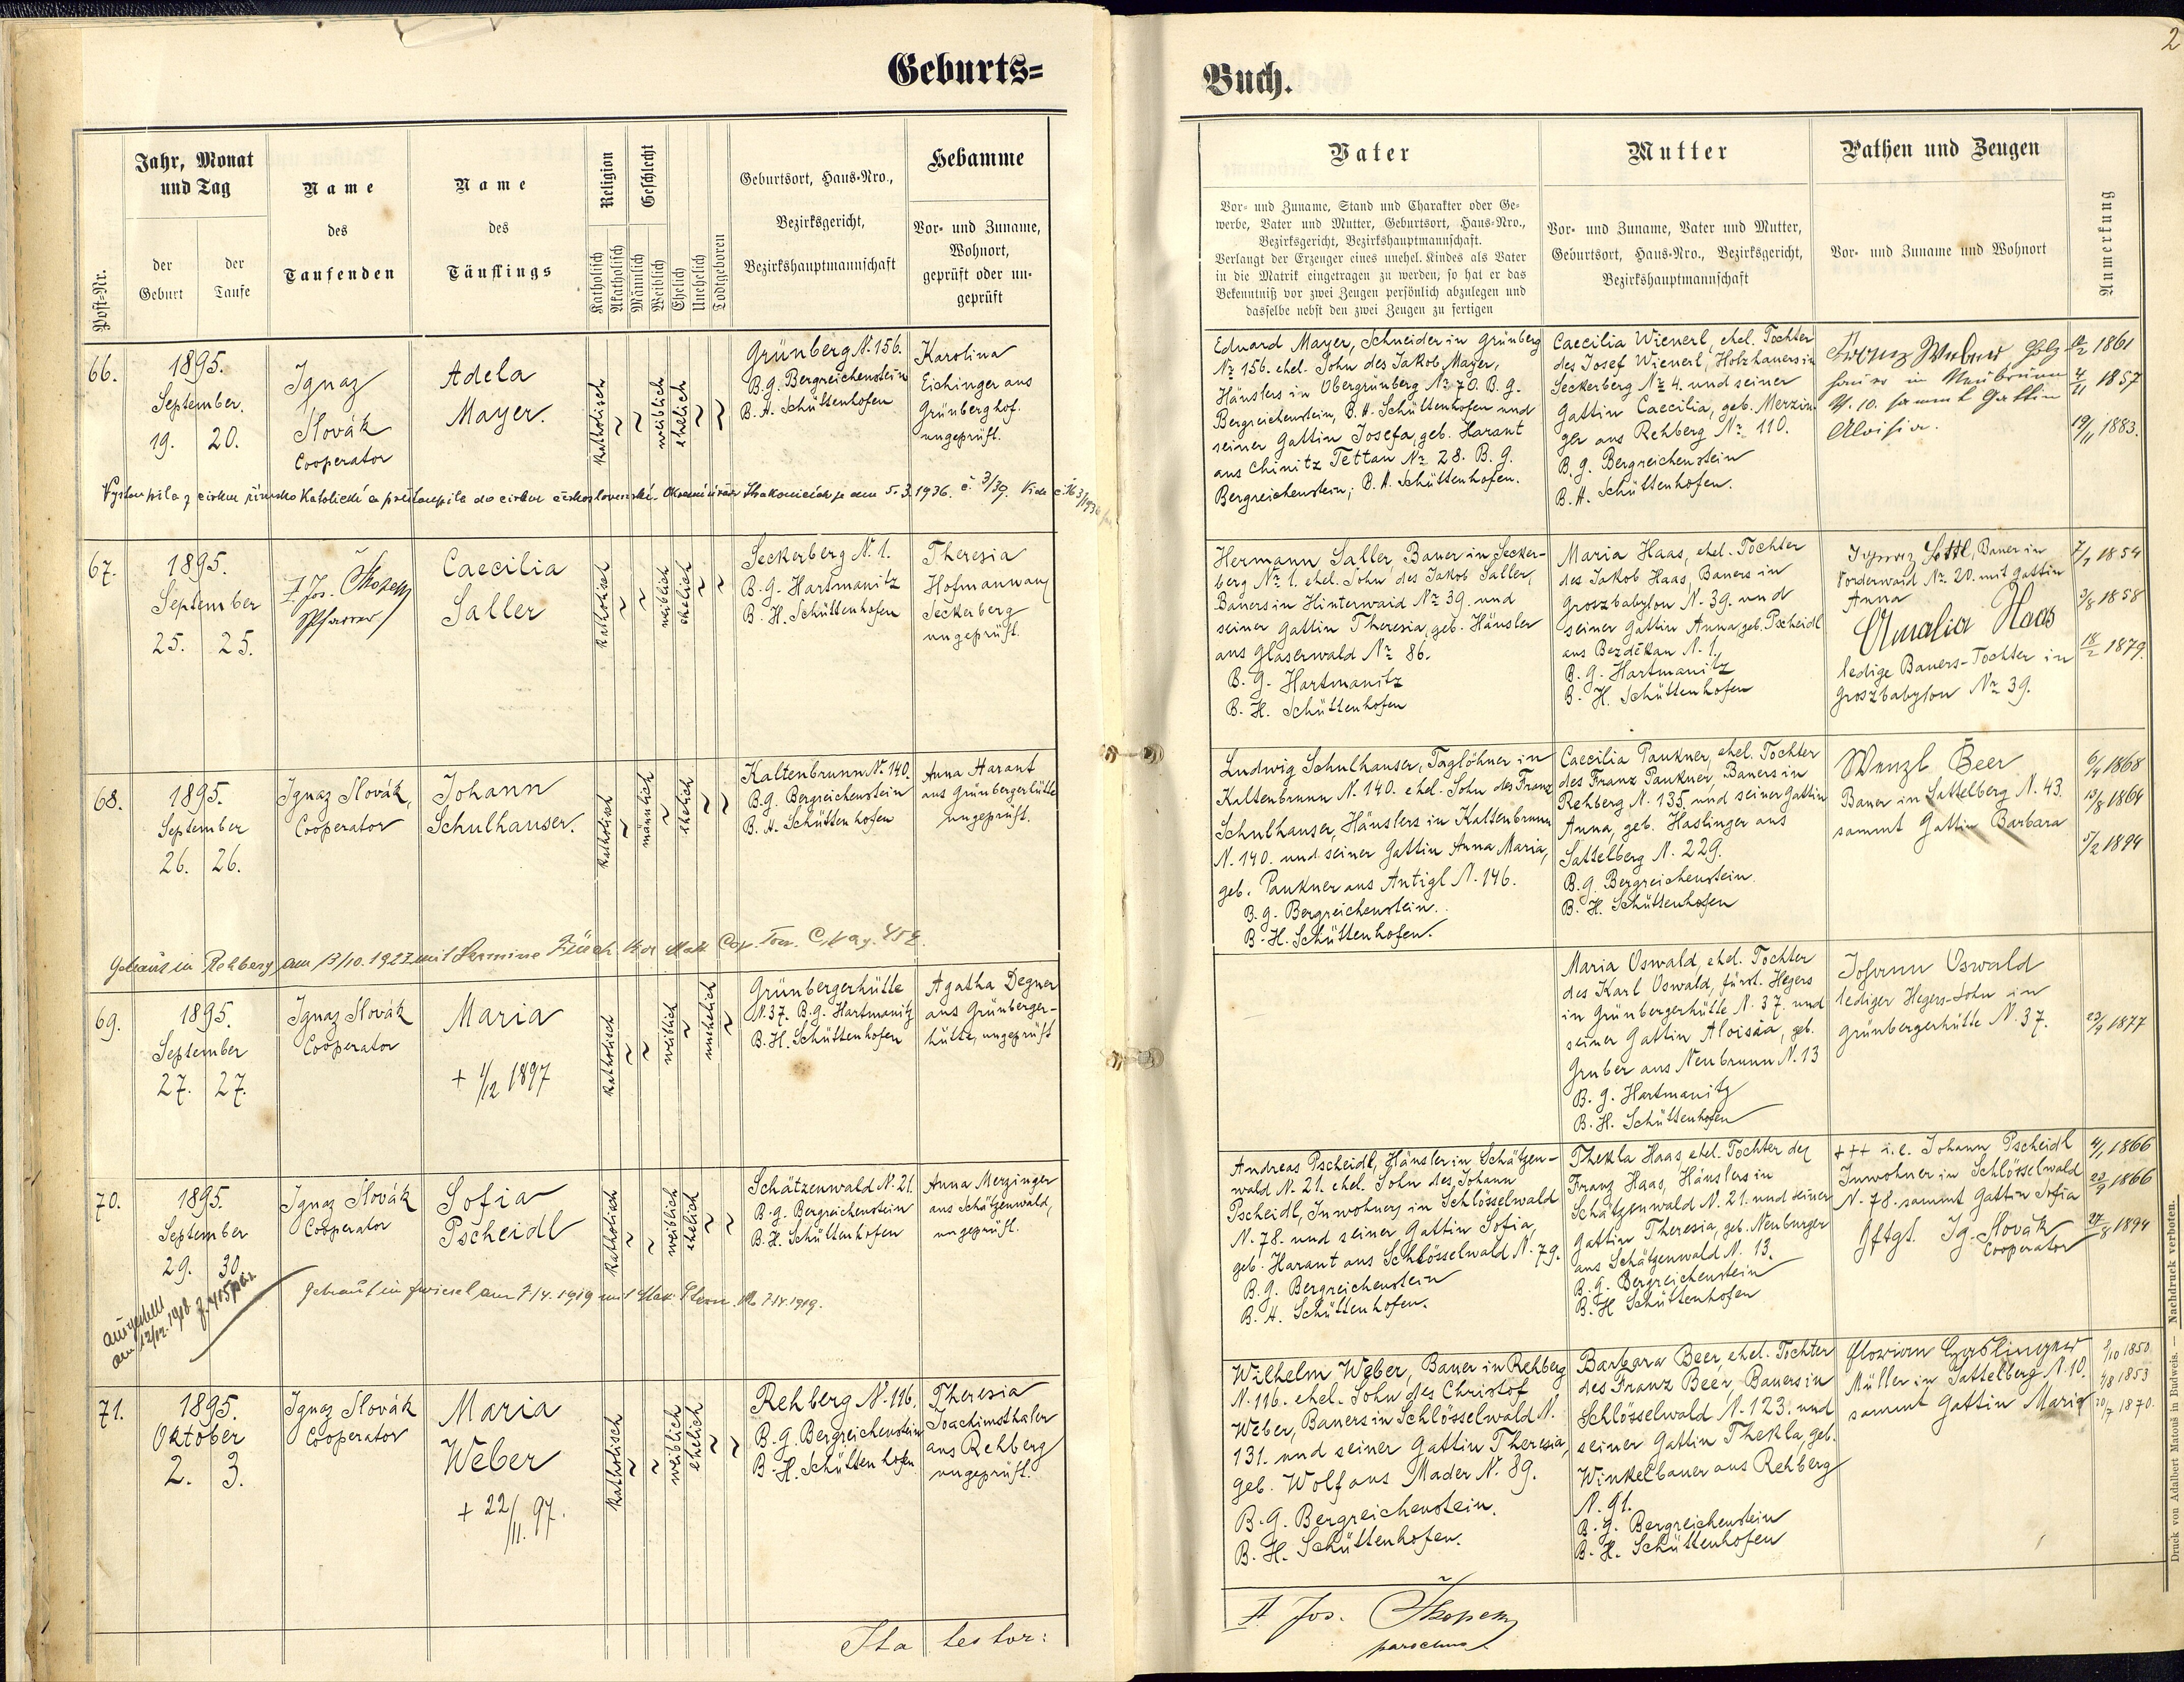 Geburts=
Buch.
2
Post-Nr.
Jahr, Monat
und Tag
der
Geburt
der
Taufe
Name
des
Taufenden
Name
des
Täuflings
Religion
Katholisch
Akatholisch
Geschlecht
Männlich
Weiblich
Ehelich
Unehelich
Todtgeboren
Geburtsort, Haus-Nro.,
Bezirksgericht,
Bezirkshauptmannschaft
Hebamme
Vor- und Zuname,
Wohnort,
geprüft oder un-
geprüft
Vater
Vor- und Zuname, Stand und Charakter oder Ge-
werbe, Vater und Mutter, Geburtsort, Haus-Nro.,
Bezirksgericht, Bezirkshauptmannschaft.
Verlangt der Erzeuger eines unehel. Kindes als Vater
in die Matrik eingetragen zu werden, so hat er das
Bekenntniß vor zwei Zeugen persönlich abzulegen und
dasselbe nebst den zwei Zeugen zu fertigen
Mutter
Vor- und Zuname, Vater und Mutter,
Geburtsort, Haus-Nro., Bezirksgericht,
Bezirkshauptmannschaft
Pathen und Zeugen
Vor- und Zuname und Wohnort
Anmerkung
66.
1895.
September.
19. 20.
Ignaz
Slovák
Cooperator
Adela
Mayer.
katholisch
~
~
weiblich
ehelich
~
~
Grünberg N. 156.
B.G. Bergreichenstein
B.H. Schüttenhofen
Karolina
Eichinger aus
Grünberghof.
ungeprüft.
Eduard Mayer, Schneider in Grünberg
Nr. 156. ehel. Sohn des Jakob Mayer,
Häuslers in Obergrünberg Nr. 70. B.G.
Bergreichenstein, B.H. Schüttenhofen und
seiner Gattin Josefa, geb. Harant
aus Chinitz Tettau Nr. 28. B.G.
Bergreichenstein, B.H. Schüttenhofen.
Caecilia Wienerl, ehel. Tochter
des Josef Wienerl, Holzhauers in
Seckerberg Nr. 4. und seiner
Gattin Caecilia, geb. Merzin-
ger aus Rehberg Nr. 110.
B.G. Bergreichenstein
B.H. Schüttenhofen.
Franz Weber Holz
hauer in Neubrunn
N. 10. sammt Gattin
Aloisia.
1861
4/11 1857
19/11 1883.
Vystoupila z církve římsko katolické a přistoupila do církve československé. 5.3.1936. č. 3/39.
67.
1895.
September
25. 25.
P. Jos. Skopek
Pfarrer
Caecilia
Saller
katholisch
~
~
weiblich
ehelich
~
~
Seckerberg N. 1.
B.G. Hartmanitz
B.H. Schüttenhofen
Theresia
Hofmann aus
Seckerberg
ungeprüft.
Hermann Saller, Bauer in Secker-
berg Nr. 1. ehel. Sohn des Jakob Saller,
Bauers in Hinterwaid Nr. 39. und
seiner Gattin Theresia, geb. Häusler
aus Glaserwald Nr. 86.
B.G. Hartmanitz
B.H. Schüttenhofen
Maria Haas, ehel. Tochter
des Jakob Haas, Bauers in
Groszbabylon N. 39. und
seiner Gattin Anna, geb. Pscheidl
aus Bezděkau N. 1.
B.G. Hartmanitz
B.H. Schüttenhofen
Ignaz Sottl, Bauer in
Vorderwaid Nr. 20. mit Gattin
Anna
Amalia Haas
ledige Bauers-Tochter in
Groszbabylon Nr. 39.
1854
1858
18/2 1879.
68.
1895.
September
26. 26.
Ignaz Slovák,
Cooperator
Johann
Schulhauser.
katholisch
~
männlich
~
ehelich
~
~
Kaltenbrunn N. 140.
B.G. Bergreichenstein
B.H. Schüttenhofen
Anna Harant
aus Grünbergerhütte
ungeprüft.
Ludwig Schulhauser, Taglöhner in
Kaltenbrunn N. 140. ehel. Sohn des Franz
Schulhauser, Häuslers in Kaltenbrunn
N. 140. und seiner Gattin Anna Maria,
geb. Paukner aus Antigl N. 146.
B.G. Bergreichenstein.
B.H. Schüttenhofen.
Caecilia Paukner, ehel. Tochter
des Franz Paukner, Bauers in
Rehberg N. 135. und seiner Gattin
Anna, geb. Haslinger aus
Sattelberg N. 229.
B.G. Bergreichenstein
B.H. Schüttenhofen
Wenzl Beer
Bauer in Sattelberg N. 43.
sammt Gattin Barbara
1868
13/8 1864
5/2 1894
Getraut in Rehberg am 13/10. 1923 mit Hermine
69.
1895.
September
27. 27.
Ignaz Slovák
Cooperator
Maria
+ 1/12 1897
katholisch
~
~
weiblich
~
unehelich
~
Grünbergerhütte
N. 37. B.G. Hartmanitz
B.H. Schüttenhofen
Agatha Degner
aus Grünberger-
hütte, ungeprüft
Maria Oswald, ehel. Tochter
des Karl Oswald, fürst. Hegers
in Grünbergerhütte N. 37. und
seiner Gattin Aloisia, geb.
Gruber aus Neubrunn N. 13
B.G. Hartmanitz
B.H. Schüttenhofen
Johann Oswald
lediger Hegers-Sohn in
Grünbergerhütte N. 37.
23/9 1877
70.
1895.
September
29. 30.
Ignaz Slovák
Cooperator
Sofia
Pscheidl
katholisch
~
~
weiblich
ehelich
~
~
Schätzenwald N. 21.
B.G. Bergreichenstein
B.H. Schüttenhofen
Anna Merzinger
aus Schätzenwald,
ungeprüft.
Andreas Pscheidl, Häusler in Schätzen-
wald N. 21. ehel. Sohn des Johann
Pscheidl, Inwohners in Schlösselwald
N. 78. und seiner Gattin Sofia,
geb. Harant aus Schlösselwald N. 79.
B.G. Bergreichenstein
B.H. Schüttenhofen.
Thekla Haas, ehel. Tochter des
Franz Haas, Häuslers in
Schätzenwald N. 21. und seiner
Gattin Theresia, geb. Neuburger
aus Schätzenwald N. 13.
B.G. Bergreichenstein
B.H. Schüttenhofen
+++ i.e. Johann Pscheidl
Inwohner in Schlösselwald
N. 78. sammt Gattin Sofia
gftgt. Ig. Slovák
Cooperator
4/1 1866
22/9 1866
27/8 1894
ausgestellt
am 12/12. 1918.
Getraut in Zwiesel am 7/4. 1919 mit
71.
1895.
Oktober
2. 3.
Ignaz Slovák
Cooperator
Maria
Weber
+ 22/11. 97.
katholisch
~
~
weiblich
ehelich
~
~
Rehberg N. 116.
B.G. Bergreichenstein
B.H. Schüttenhofen
Theresia
Joachimsthaler
aus Rehberg
ungeprüft.
Wilhelm Weber, Bauer in Rehberg
N. 116. ehel. Sohn des Christof
Weber, Bauers in Schlösselwald N.
131. und seiner Gattin Theresia,
geb. Wolf aus Mader N. 89.
B.G. Bergreichenstein.
B.H. Schüttenhofen.
Barbara Beer, ehel. Tochter
des Franz Beer, Bauers in
Schlösselwald N. 123. und
seiner Gattin Thekla, geb.
Winkelbauer aus Rehberg
N. 91.
B.G. Bergreichenstein
B.H. Schüttenhofen
Florian Haslinger
Müller in Sattelberg N. 10.
sammt Gattin Maria
1850
1853
1870.
Ita testor:
P. Jos. Skopek
parochus
Druck von Adalbert Matouš in Budweis. — Nachdruck verboten.